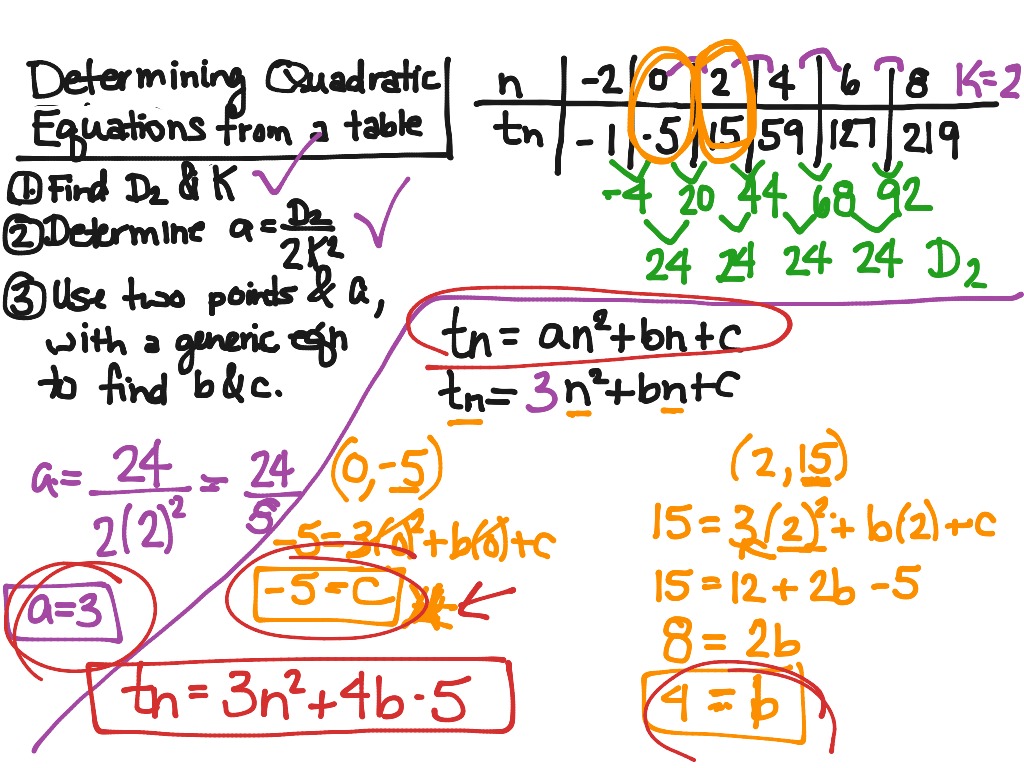 Determining Quadratic
Equations from a table
① Find D₂ & K
② Determine a = D₂/2K²
③ Use two points & a,
with a generic eqn
to find b & c.
n | -2 | 0 | 2 | 4 | 6 | 8 K=2
tn | -1 | -5 | 15 | 59 | 127 | 219
-4 20 44 68 92
24 24 24 24 D₂
tn = an² + bn + c
tn = 3n² + bn + c
a = 24/2(2)² = 24/8
a = 3
(0, -5)
-5 = 3(0)² + b(0) + c
-5 = c
(2, 15)
15 = 3(2)² + b(2) + c
15 = 12 + 2b - 5
8 = 2b
4 = b
tn = 3n² + 4b - 5